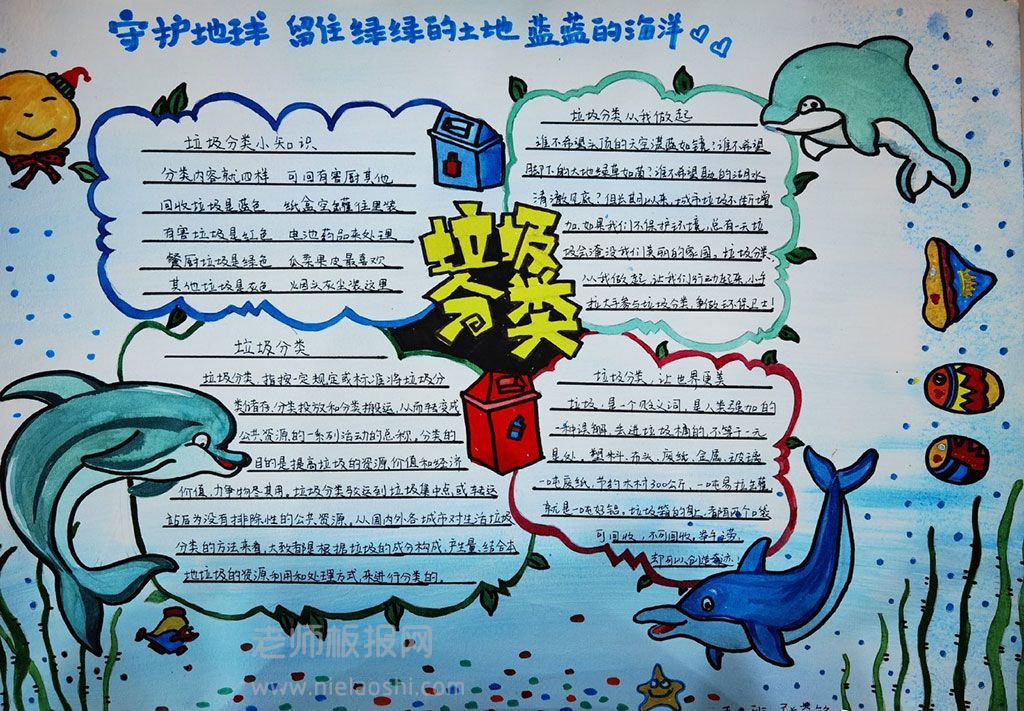 守护地球 留住绿绿的土地 蓝蓝的海洋
垃圾分类小知识
分类内容就四样 可回有害厨其他
回收垃圾是蓝色 纸盒空罐住里装
有害垃圾是红色 电池药品来处理
餐厨垃圾是绿色 瓜菜果皮最喜欢
其他垃圾是灰色 烟头灰尘装这里
垃圾分类从我做起
谁不希望头顶的天空湛蓝如镜?谁不希望
脚下的大地绿草如茵?谁不希望身边的湖水
清澈见底?但长期以来,城市垃圾不断增
加.如果我们不保护环境,总有一天垃
圾会淹没我们美丽的家园。垃圾分类
从我做起,让我们行动起来,小手
拉大手参与垃圾分类,争做环保卫士!
垃圾
分类
垃圾分类
垃圾分类,指按一定规定或标准将垃圾分
类储存、分类投放和分类搬运,从而转变成
公共资源的一系列活动的总称。分类的
目的是提高垃圾的资源价值和经济
价值,力争物尽其用。垃圾分类投运到垃圾集中点,或转运
站后为没有排除性的公共资源。从国内外各城市对生活垃圾
分类的方法来看,大致都是根据垃圾的成分构成,产生量,结合本
地垃圾的资源利用和处理方式,来进行分类的。
垃圾分类,让世界更美
垃圾,是一个贬义词,是人类强加的
一种误解,丢进垃圾桶的,不等于一无
是处。塑料、布头、废纸、金属、玻璃
一吨废纸,节约木材300公斤、一吨易拉罐
就是一吨好铝。垃圾箱的身上,都有两个口袋
可回收,不可回收,举手之劳
却可以创造奇迹!
老师板报网
www.nielaoshi.com